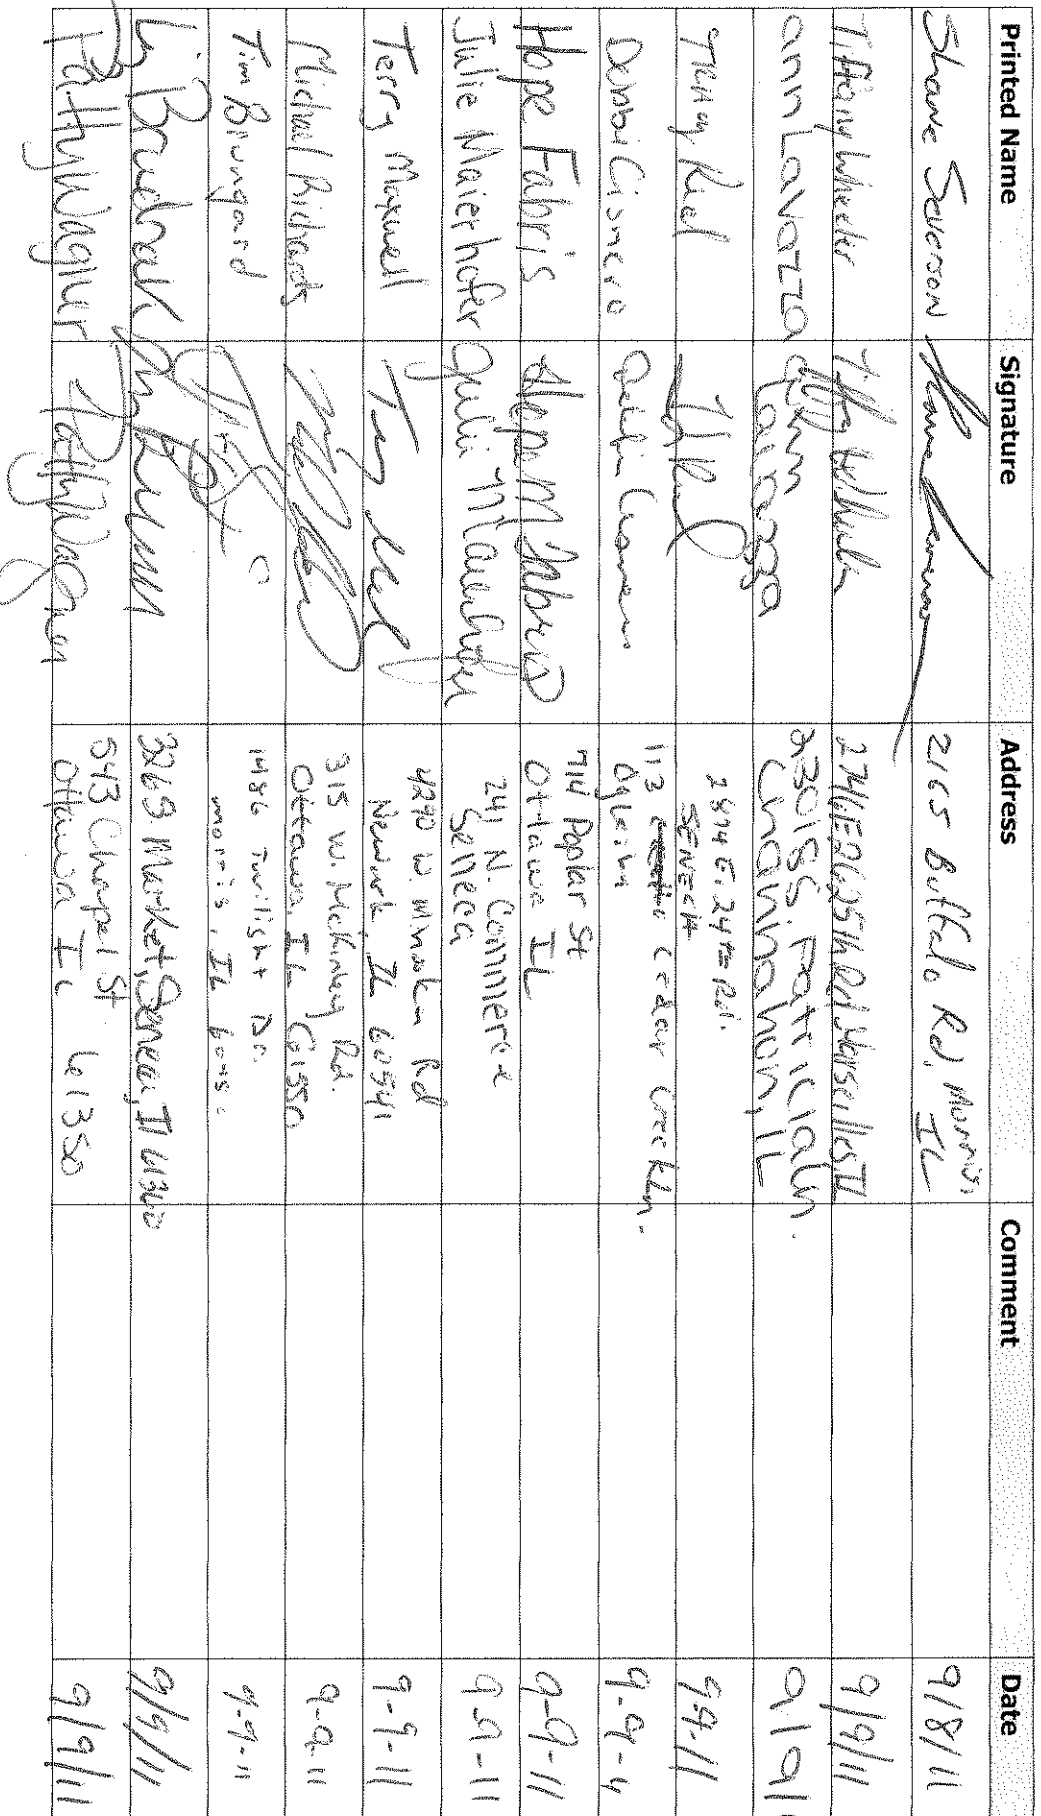 Printed Name Signature Address Comment Date
Shane Severson 2165 Buffalo Rd, Morris, IL 9/8/11
Tiffany Wheeler 2746 E 2625th Rd Marseilles IL 9/9/11
ann Lavazza ann Lavazza 23018 S. Patricia Ln. Channahon, IL 9/9/
2474 E. 24th Rd. SENECA 9-9-11
Debbi Cisnero 112 Cedar Creek Ln. 9-9-11
Hope Fabris Hope M Fabris 714 Poplar St Ottawa IL 9-9-11
Julie Maierhofer Julie Maierhofer 241 N. Commerce Seneca 9-9-11
Terry Maxwell 4290 W. Minooka Rd Newark, IL 60541 9-9-11
Michael Richards 315 W. McKinley Rd. Ottawa, IL 61350 9-9-11
Tim Brungard 1486 Twilight Dr. morris, IL 9-9-11
326 S Market, Seneca, IL 61360 9/9/11
Patty Wagner Patty Wagner 543 Chapel St Ottawa IL 61350 9/9/11